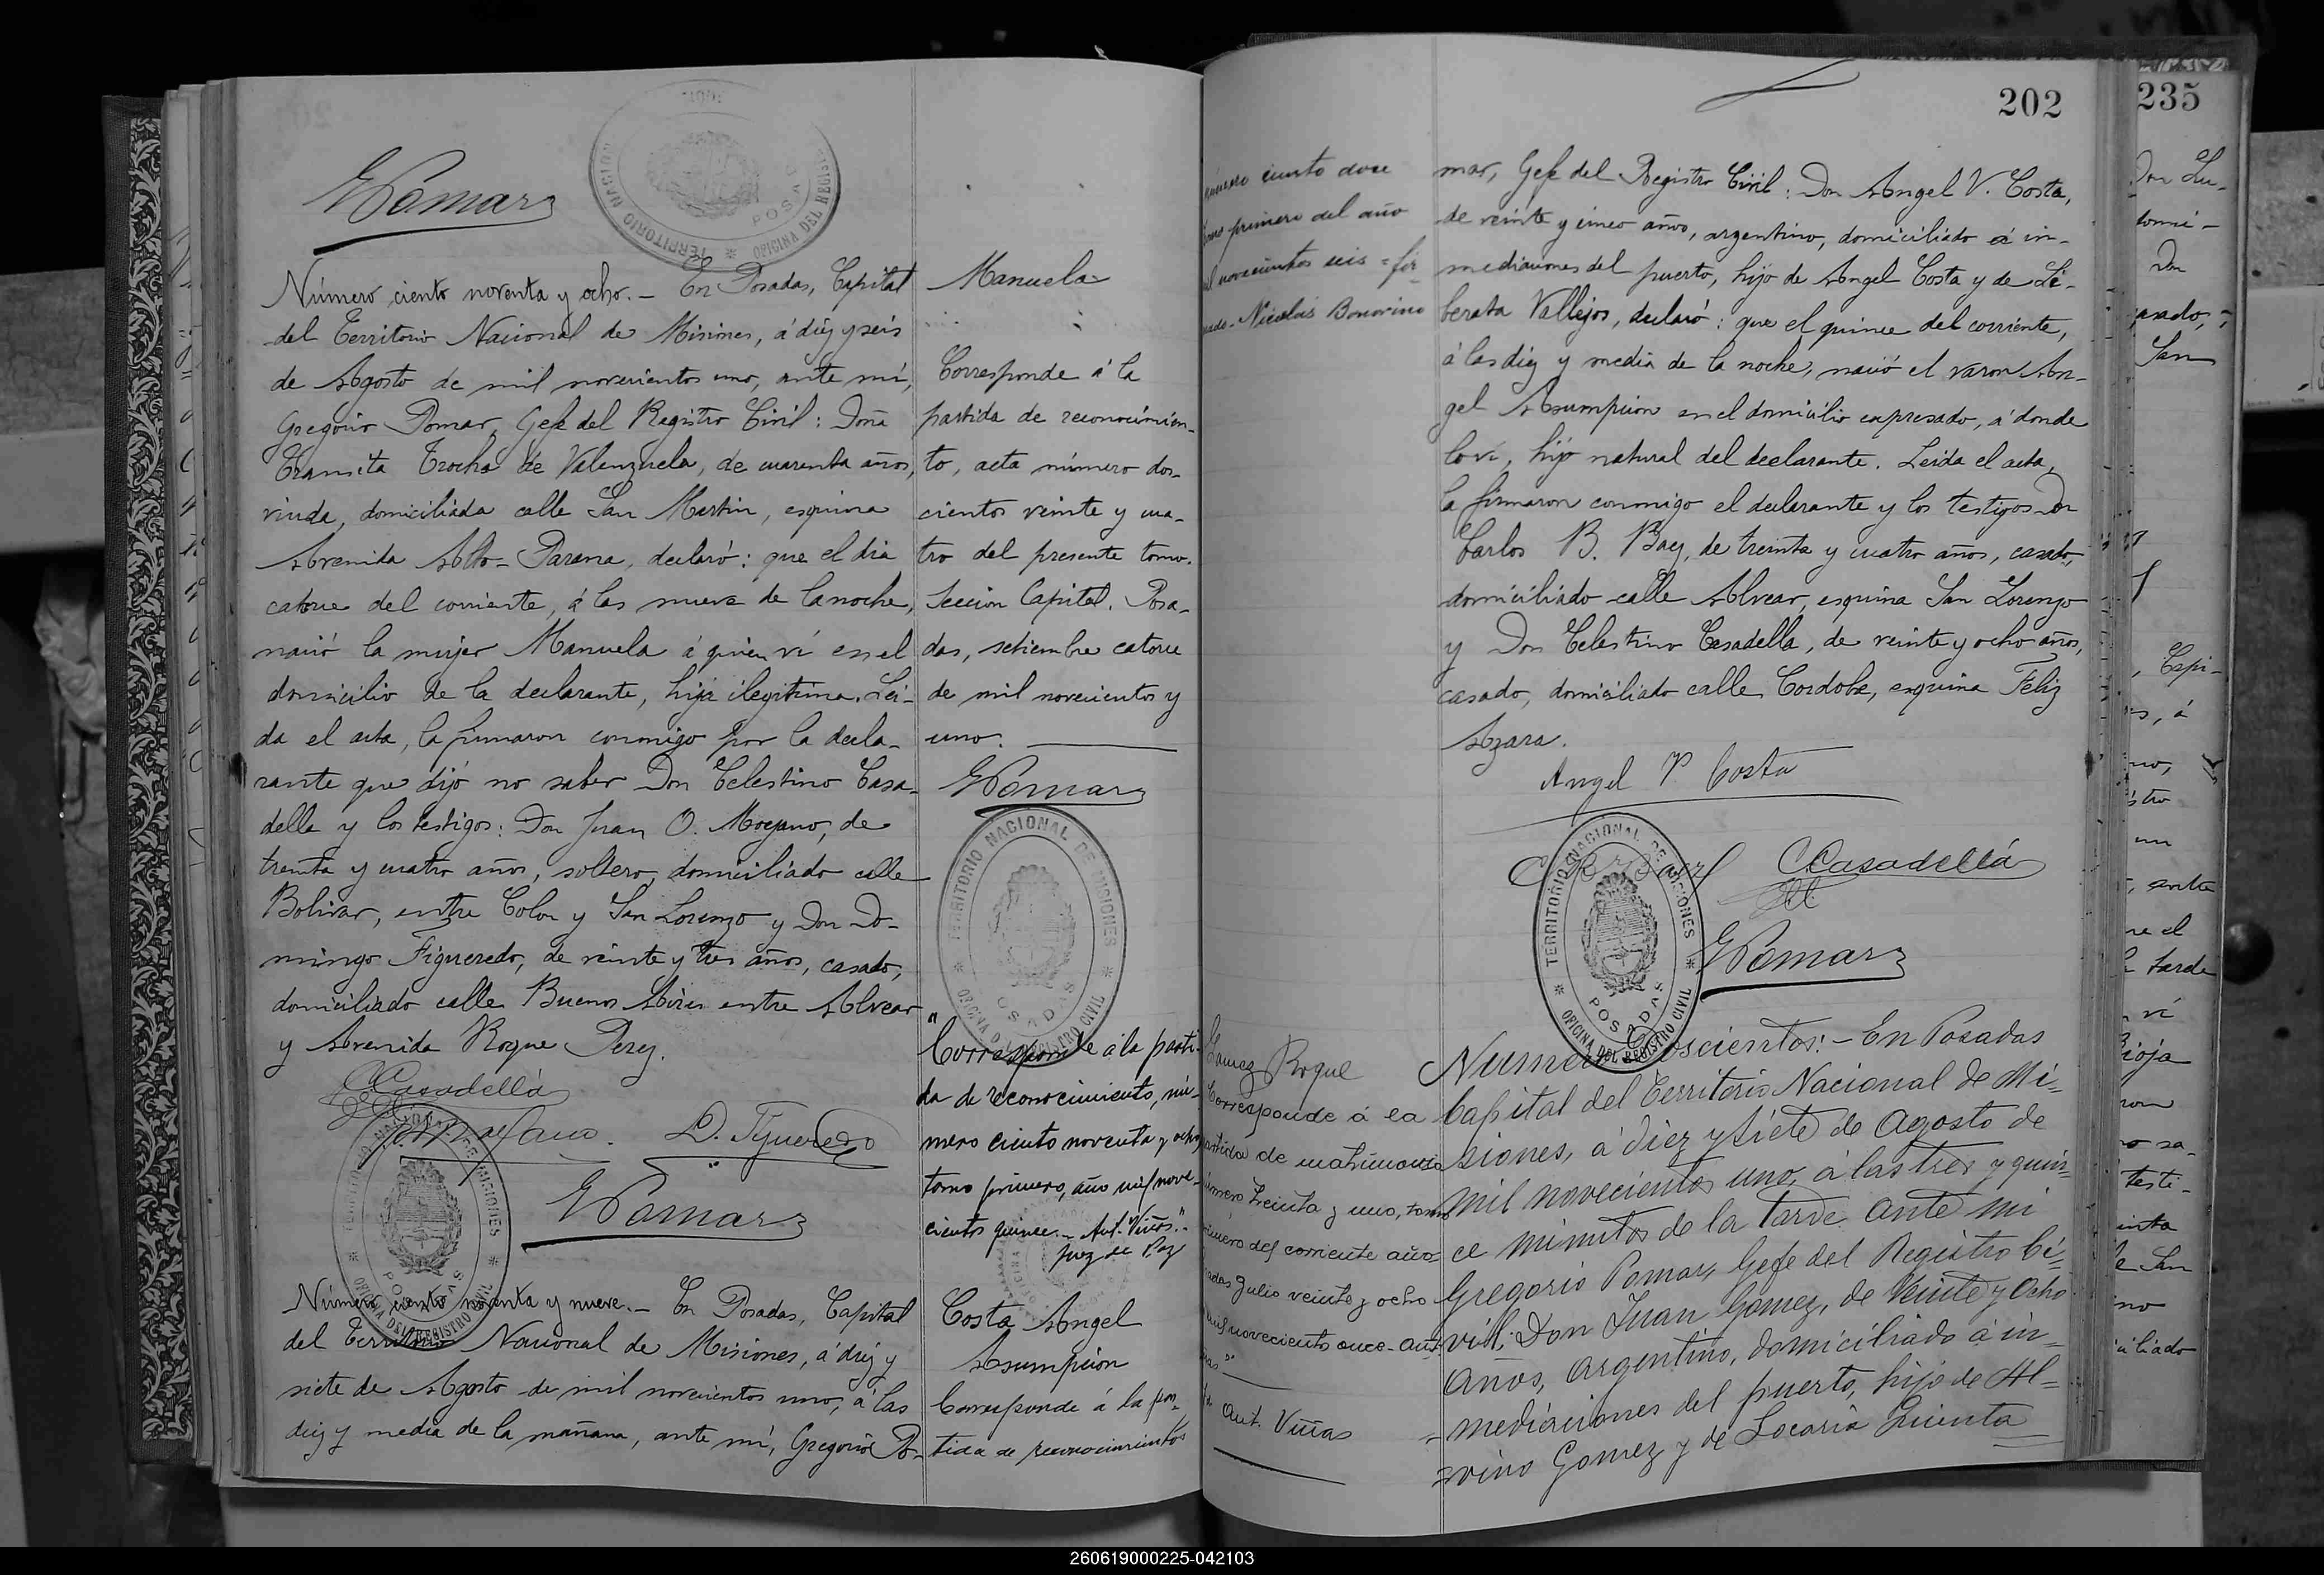 GPomar
Número ciento noventa y ocho.- En Posadas, Capital
del Territorio Nacional de Misiones, á diez y seis
de Agosto de mil novecientos uno, ante mí,
Gregorio Pomar, Gefe del Registro Civil: Doña
Transita Trocha de Valenzuela, de cuarenta años,
viuda, domiciliada calle San Martin, esquina
Avenida Alto-Parana, declaró: que el dia
catorce del corriente, á las nueve de la noche,
nació la mujer Manuela á quien ví en el
domicilio de la declarante, hija ilegitima. Lei-
da el acta, la firmaron conmigo por la decla-
rante que dijó no saber Don Celestino Casa-
della y los testigos: Don Juan O. Moyano, de
treinta y cuatro años, soltero, domiciliado calle
Bolivar, entre Colon y San Lorenzo y Don Do-
mingo Figueredo, de veinte y tres años, casado,
domiciliado calle Buenos Aires entre Alvear
y Avenida Roque Perez.
CCasadellá
D. Figueredo
GPomar
TERRITORIO NACIONAL DE MISIONES
POSADAS
OFICINA DEL REGISTRO CIVIL
Manuela
Corresponde á la
partida de reconocimien-
to, acta número dos-
cientos veinte y cua-
tro del presente tomo.
Seccion Capital. Posa-
das, setiembre catorce
de mil novecientos y
uno.
GPomar
TERRITORIO NACIONAL DE MISIONES
POSADAS
OFICINA DEL REGISTRO CIVIL
"Corresponde á la parti-
da de reconocimiento, nú-
mero ciento noventa y ocho,
tomo primero, año mil nove-
cientos quince.- Ant. Viñas."
Juez de Paz
Número ciento noventa y nueve.- En Posadas, Capital
del Territorio Nacional de Misiones, á diez y
siete de Agosto de mil novecientos uno, á las
diez y media de la mañana, ante mí, Gregorio Po-
Costa Angel
Asumpcion
Corresponde á la par-
tida de reconocimiento
202
número ciento doce
tomo primero del año
mil novecientos seis = fir-
mado- Nicolás Bonorino
mar, Gefe del Registro Civil: Don Angel V. Costa,
de veinte y cinco años, argentino, domiciliado á in-
mediaciones del puerto, hijo de Angel Costa y de Li-
berata Vallejos, declaró: que el quince del corriente,
á las diez y media de la noche, nació el varon An-
gel Asumpcion en el domicilio expresado, á donde
lo ví, hijo natural del declarante. Leida el acta,
la firmaron conmigo el declarante y los testigos Don
Carlos B. Baez, de treinta y cuatro años, casado,
domiciliado calle Alvear, esquina San Lorenzo
y Don Celestino Casadella, de veinte y ocho años,
casado, domiciliado calle Cordoba, esquina Feliz
Azara.
Angel V. Costa
CCasadellá
GPomar
TERRITORIO NACIONAL DE MISIONES
POSADAS
OFICINA DEL REGISTRO CIVIL
Gomez Roque
Corresponde á la
partida de matrimonio
número treinta y uno, tomo
primero del corriente año-
Posadas Julio veinte y ocho
mil novecientos once- Ant.
Ant. Viñas
Numero Doscientos:- En Posadas
Capital del Territorio Nacional de Mi-
siones, á diez y siete de Agosto de
mil novecientos uno, á las tres y quin-
ce minutos de la tarde ante mi
Gregorio Pomar, Gefe del Registro Ci-
vil; Don Juan Gomez, de Veinte y Ocho
años, argentino, domiciliado á in-
mediaciones del puerto, hijo de Al-
vino Gomez y de Locaria
235
Don Lu-
domi-
Don
casado,
San
Capi-
es, á
no,
stro
un
, entre
ue el
tarde
ví
Rioja
ron
no sa-
testi-
inta
e San
no
iciliado
260619000225-042103